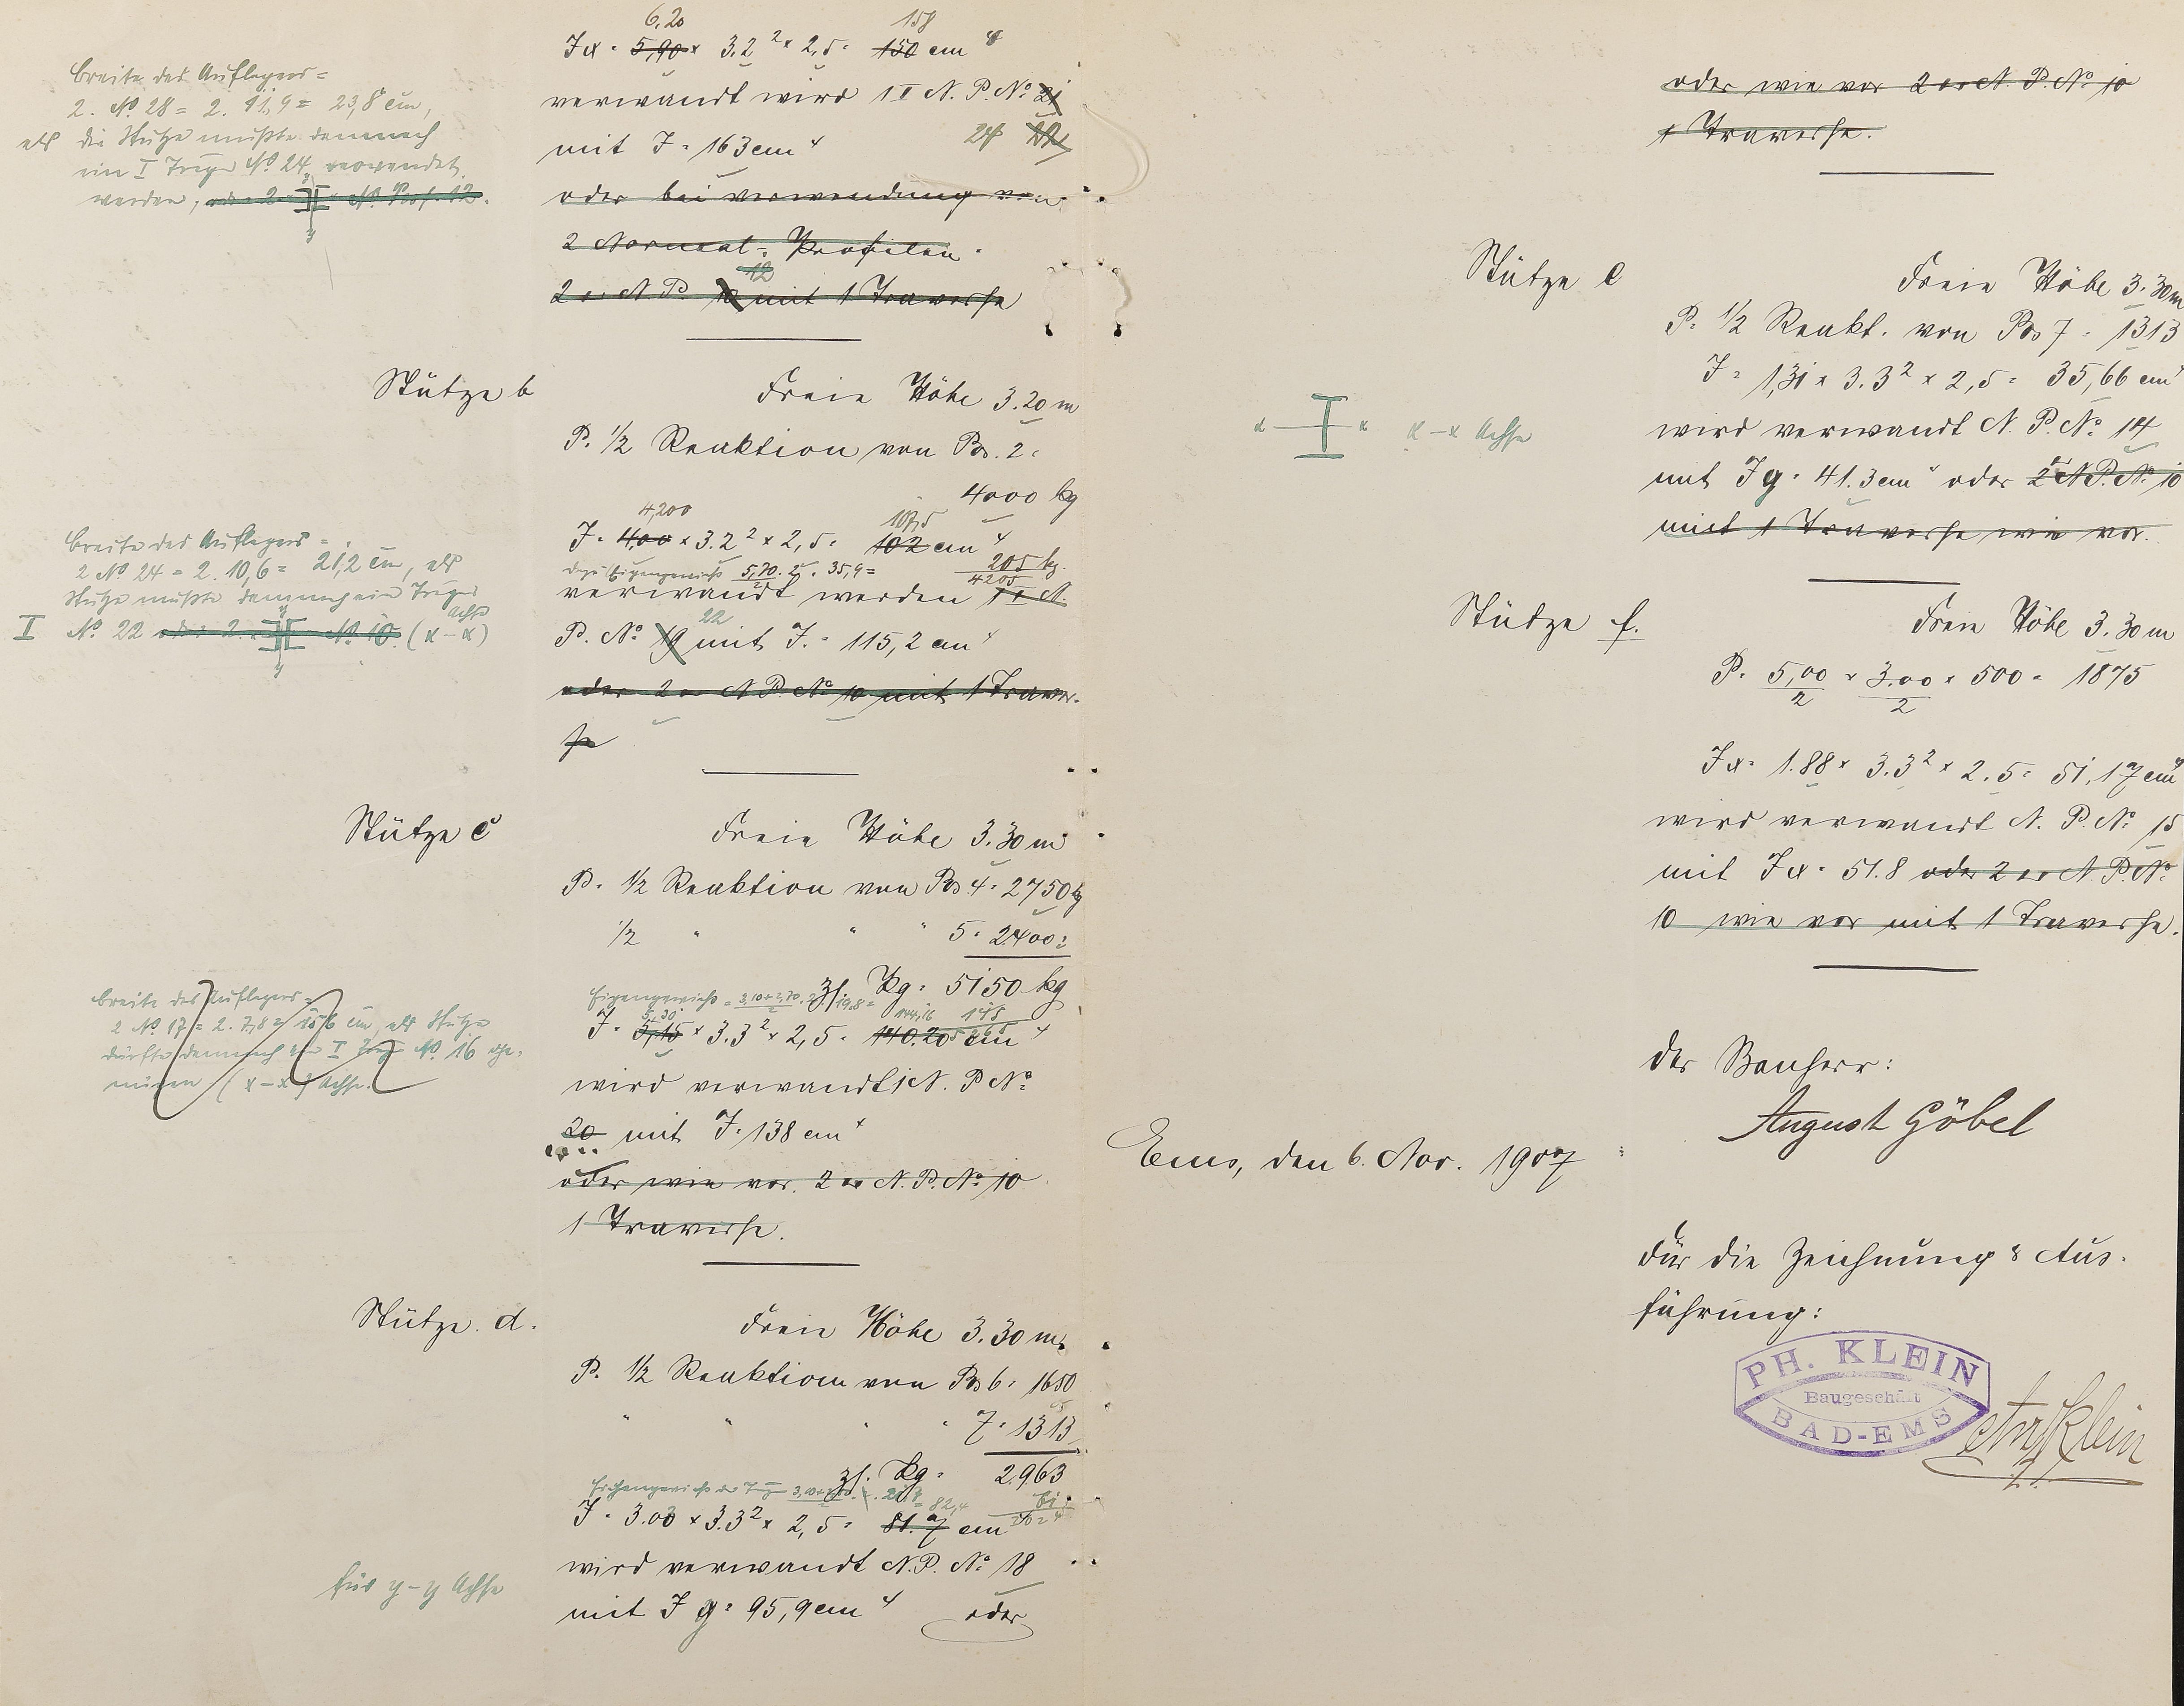 6,20 158
Jx = 5,90 x 3.2² x 2,5 = 150 cm⁴
Breite des Auflagers =
2. No 28 = 2. 11,9 = 23,8 cm,
als die Stütze müßte demnach
ein I Träger No 24 verwendet
werden, oder 2 N. Prof. 12.
y
verwandt wird 1 I N. P. No 21
24
mit J = 163 cm⁴
oder bei Verwendung von
2 Normal-Profilen.
12
2 N. P. mit 1 Traverse
Stütze b
Freie Höhe 3.20 m
P. 1/2 Reaktion von Pos. 2 =
4000 kg
4,200 107,5
J = 4,00 x 3.2² x 2,5 = 102 cm⁴
dazu Eigengewicht 5,70 . 2 . 35,9 = 205 kg.
2 4205
Breite des Auflagers =
2 No 24 = 2. 10,6 = 21,2 cm, als
Stütze müßte demnach ein Träger
I No 22 oder 2 No 10. (x-x) Achse
y
verwandt werden 1 N.
22
P. No 19 mit J. = 115,2 cm⁴
oder 2 N. P. No 10 mit 1 Traver-
se
Stütze c
Freie Höhe 3.30 m
P. 1/2 Reaktion von Pos 4 = 2750 kg
1/2 " " " 5 = 2400 =
zs. Kg = 5150 kg
Eigengewicht = 3,10 + 2,70 . 2 . 19,8 =
5,30 144,16 115
J = 5,15 x 3.3² x 2,5 = 140.20 cm⁴
Breite des Auflagers =
2 No 17 = 2. 7,8 = 15,6 cm, als Stütze
dürfte demnach ein I Träger No 16 ge-
nügen (x-x) Achse.
wird verwandt 1 N. P. No
20 mit J = 138 cm⁴
oder wie vor. 2 N. P. No 10
1 Traverse.
Stütze. d.
Freie Höhe 3.30 m.
P. 1/2 Reaktion von Pos 6 = 1650
" " " " 7 = 1313
zs. Kg = 2963
Eigengewicht der Träger
82,4
J = 3.00 x 3.3² x 2,5 = 81.7 cm⁴
wird verwandt N. P. No 18
für y-y Achse
mit J y = 95,9 cm⁴ oder
oder wie vor 2 N. P. No 10
1 Traverse.
Stütze e
Freie Höhe 3.30 m
P = 1/2 Reakt. von Pos 7 = 1313
J = 1,31 x 3.3² x 2,5 = 35,66 cm⁴
x x x-x Achse
wird verwandt N. P. No 14
mit J y = 41.3 cm⁴ oder 2 N. P. No 10
mit 1 Traverse wie vor.
Stütze f.
Freie Höhe 3.30 m
P = 5,00 x 3.00 x 500 = 1875
2 2
Jx = 1.88 x 3.3² x 2.5 = 51,17 cm⁴
wird verwandt N. P. No 15
mit Jx = 51.8 oder 2 N. P. No
10 wie vor mit 1 Traverse.
der Bauherr:
August Göbel
Ems, den 6. Nov. 1907
Für die Zeichnung & Aus-
führung:
PH. KLEIN
Baugeschäft
BAD-EMS
Klein